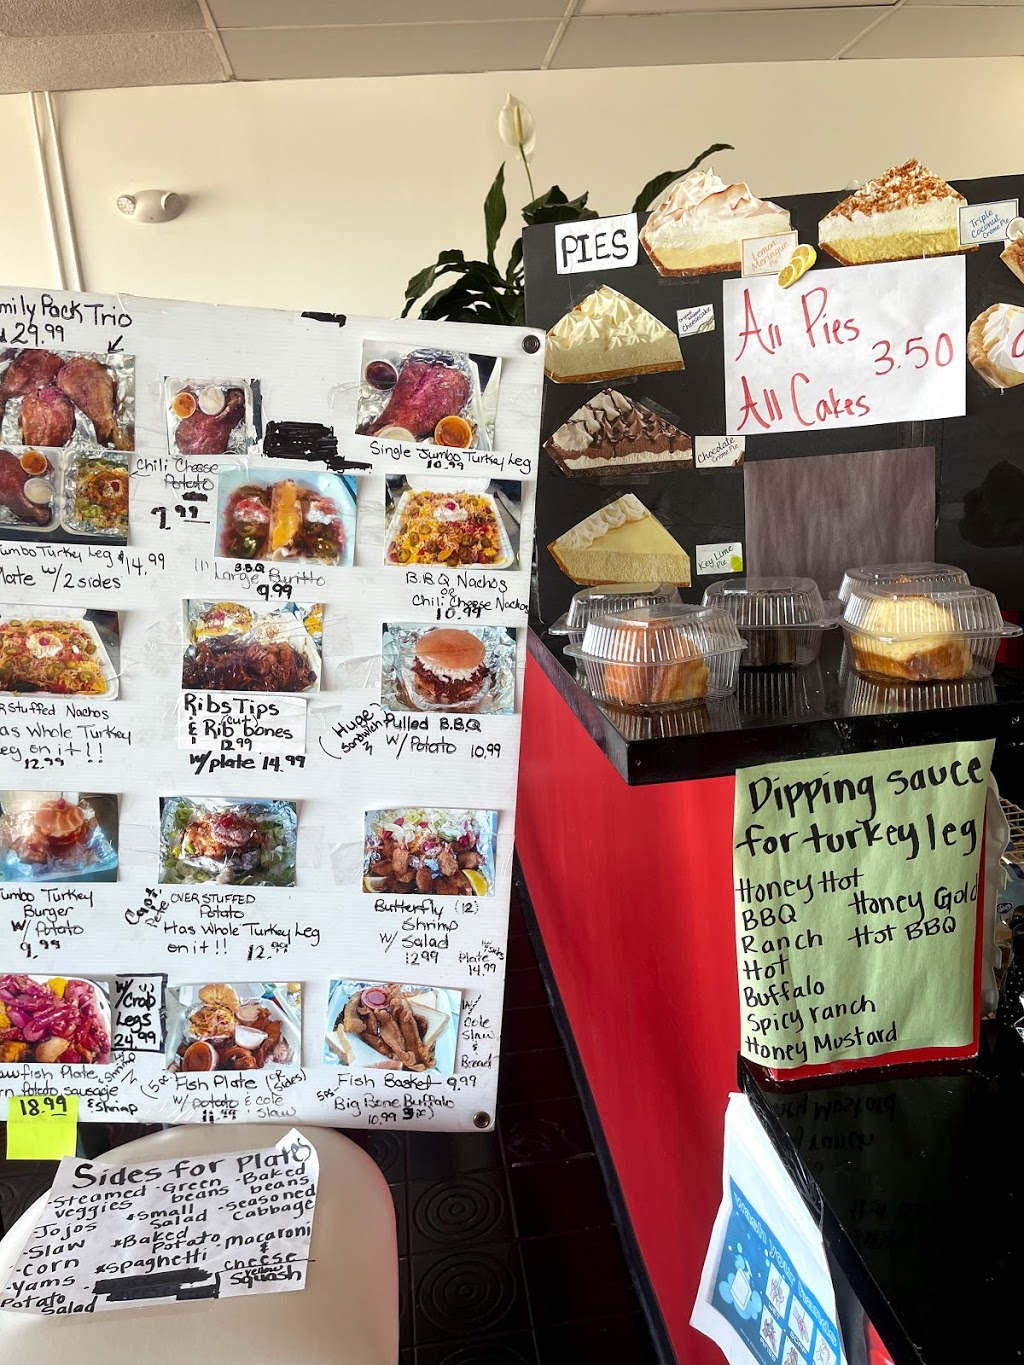 mily Pack Trio
29.99
Chili Cheese
Potato
7.99
Single Jumbo Turkey Leg
10.99
umbo Turkey Leg $14.99
late w/ 2 sides
B.B.Q
Large Burrito
9.99
B.B.Q Nachos
or
Chili Cheese Nachos
10.99
RSTUFFED Nachos
as Whole Turkey
eg on it!!
12.99
Ribs Tips
& (cut) Rib bones
12.99
w/plate 14.99
Huge
Sandwich
Pulled B.B.Q
w/ Potato 10.99
umbo Turkey
Burger
w/ Potato
9.99
OVERSTUFFED
Potato
Has Whole Turkey Leg
on it!! 12.99
Butterfly (12)
Shrimp
w/ Salad
12.99
Plate
14.99
w/
Crab
Legs
24.99
awfish Plate
rn potato sausage
& Shrimp
18.99
Fish Plate (2 sides)
w/ potato & cole
slaw
11.99
w/
Cole
Slaw
&
Bread
Fish Basket 9.99
5pc Big Bone Buffalo
10.99
Sides for Plates
-Steamed veggies
-Green beans
-Baked beans
-Jojos
*Small Salad
-Seasoned Cabbage
-Slaw
*Baked Potato
-Macaroni & cheese
-Corn
*Spaghetti
yellow Squash
-Yams
Potato Salad
PIES
Lemon
Meringue
Pie
Triple
Coconut
Creme Pie
Cheesecake
All Pies
3.50
All Cakes
Chocolate
Creme Pie
Key Lime
Pie
Dipping sauce
for turkey leg
Honey Hot
BBQ
Honey Gold
Ranch
Hot BBQ
Hot
Buffalo
Spicy ranch
Honey Mustard